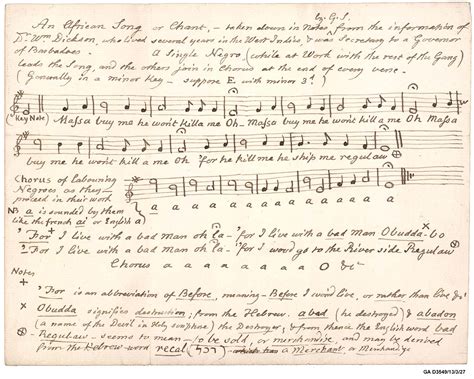 by G. S.
An African Song or Chant, – taken down in Notes from the information of
Dr. Wm Dickson, who lived several years in the West Indies, & was Secretary to a Governor
of Barbadoes. A Single Negro (while at Work with the rest of the Gang)
leads the Song, and the others join in Chorus at the end of every verse.
(Generally in a minor key – suppose E with minor 3d)
(Key Note) Massa buy me he won't killa me Oh Massa buy me he won't killa me Oh Massa
buy me he won't kill a me Oh 'for he kill me he ship me regulaw
Chorus of labouring
Negroes as they
proceed in their work
a a a a a a
NB a is sounded by them
like the french ai or English a)
"For I live with a bad man oh la – 'for I live with a bad man Obudda-bo
'For I live with a bad man oh la – 'for I would go to the River side Regulaw
Chorus a a a a a O &c
Notes
'For is an abbreviation of Before, meaning – Before I would live, or rather than live &c
Obudda signifies destruction; from the Hebrew. abad (he destroyed) & abadon
(a name of the Devil in Holy scripture) the Destroyer, & from thence the English word bad –
Regulaw – seems to mean – to be sold, or merchandise, and may be derived
from the Hebrew word recal (רכל) a Merchant, a Merchandize
GA D3549/13/3/27